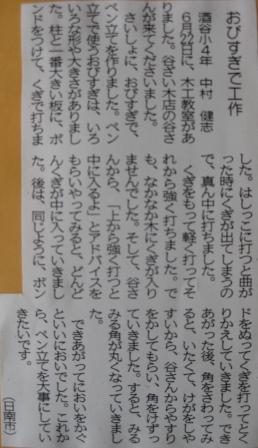 おびすぎで工作
酒谷小4年　中村　健志
６月22日に、木工教室があ
りました。谷さい木店の谷さ
んが来てくださいました。
さいしょに、おびすぎで、
ペン立てを作りました。ペン
立てで使うおびすぎは、いろ
いろな形や大きさがありまし
た。柱と一番大きい板に、ボ
ンドをつけて、くぎで打ちま
した。はしっこに打つと曲が
った時にくぎが出てしまうの
で、真ん中に打ちました。
くぎをもって軽く打ってそ
れから強く打ちました。で
も、なかなか木にくぎが入り
ませんでした。そして、谷さ
んから、「上から強く打つと
中に入るよ」とアドバイスを
もらいやってみると、どんど
んくぎが中に入っていきまし
た。後は、同じように、ボン
ドをぬってくぎを打ってとく
りかえしていきました。でき
あがった後、角をさわってみ
ると、いたくて、けがをしや
すいから、谷さんからやすり
をかしてもらい、角をけずっ
ていきました。すると、みる
みる角が丸くなっていきまし
た。
できあがってにおいをかぐ
といいにおいでした。これか
ら、ペン立てを大事にしてい
きたいです。
（日南市）